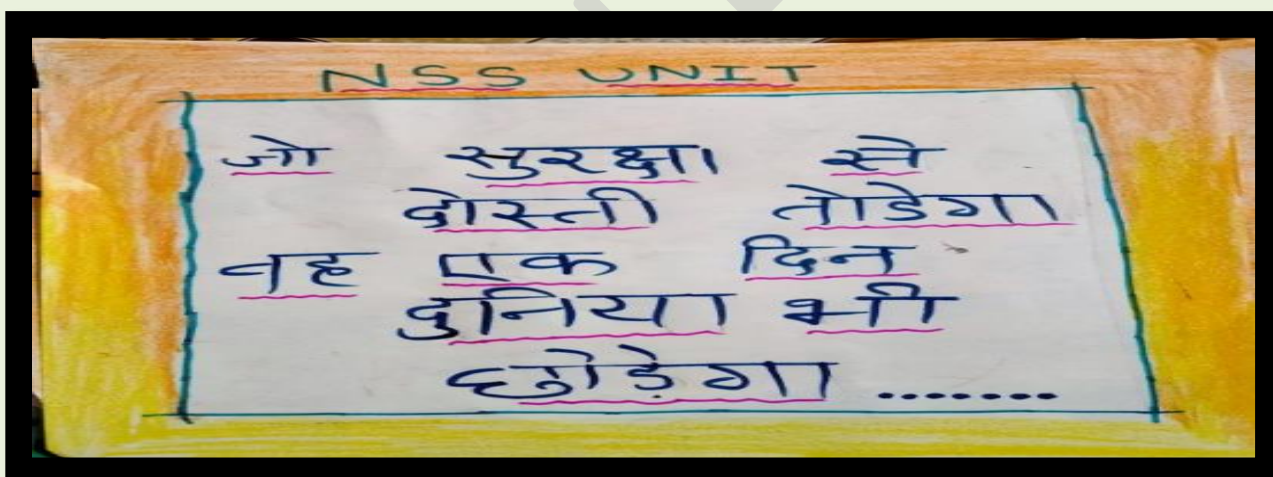 NSS UNIT
जो सुरक्षा से
दोस्ती तोडेगा
वह एक दिन
दुनिया भी
छोड़ेगा .......